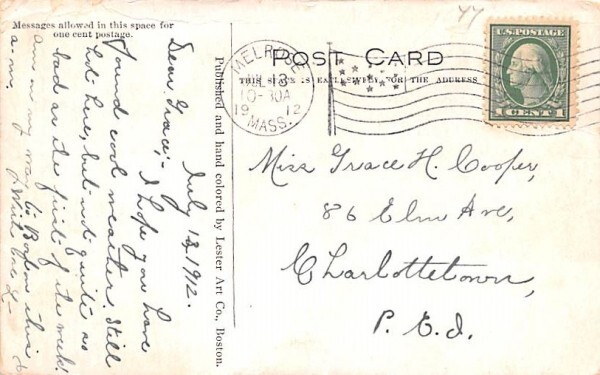 Messages allowed in this space for
one cent postage.
July 13, 1912.
Dear Grace;- I hope you have
found cool weather. Still
hot here, but not quite as
bad as the first of the week.
Am on my way to Boston this
a.m.
With love
Published and hand colored by Lester Art Co., Boston.
MELROSE
JUL 13
10-30A
1912
MASS.
POST CARD
THIS SPACE IS EXCLUSIVELY FOR THE ADDRESS
77
U.S. POSTAGE
1 CENT 1
Miss Grace H. Cooper,
86 Elm Ave,
Charlottetown,
P. E. I.